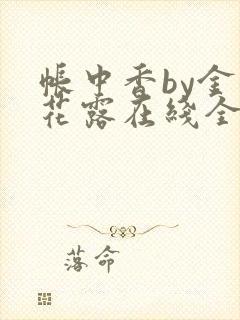 帐中香by金
花露在线全
落命